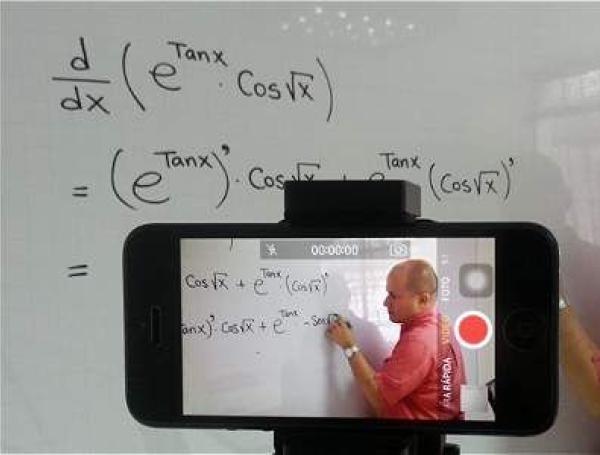 d/dx (e^Tanx · Cos√x)
= (e^Tanx)' · Cos√x + e^Tanx (Cos√x)'
=
00:00:00
Cos√x + e^Tanx (Cos√x)'
anx)' · Cos√x + e^Tanx · -Sen
RÁPIDA VIDEO FOTO